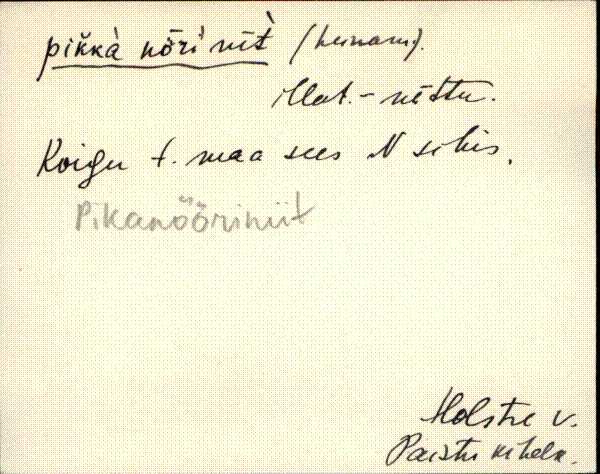 pik̆kà nȭri nīt̀ (heinam).
illat. - nīttu.
Koigu t. maa sees N sihis.
Pikanööriniit
Holstre v.
Paistu kihelk.